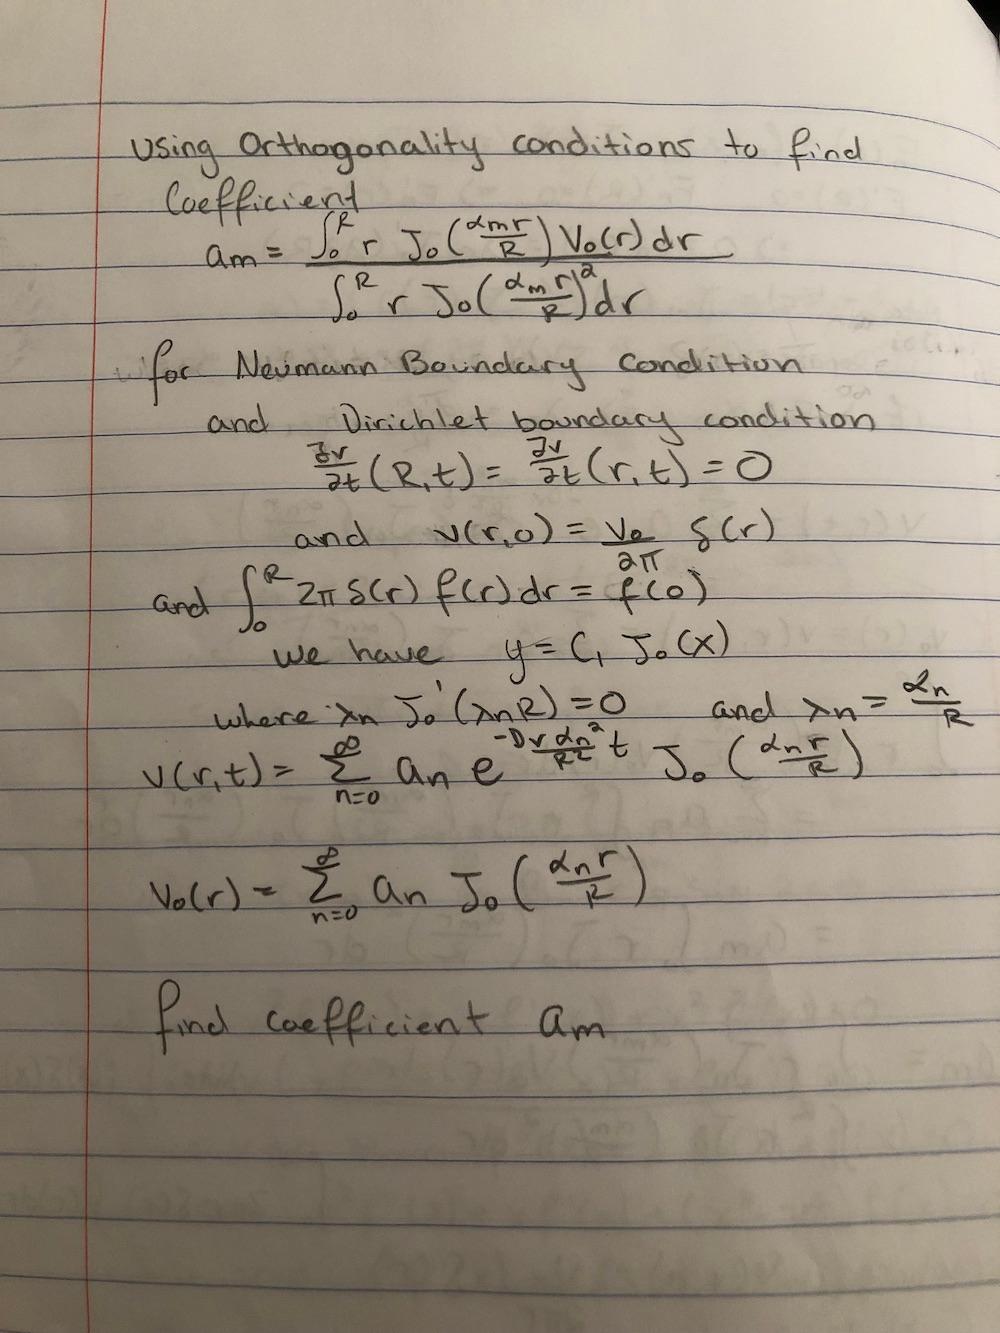 Using Orthogonality conditions to find
Coefficient
am = ∫₀ᴿ r J₀(αmr/R) V₀(r) dr / ∫₀ᴿ r J₀(αm r/R)² dr
for Neumann Boundary Condition
and Dirichlet boundary condition
∂v/∂t (R,t) = ∂v/∂t (r,t) = 0
and v(r,0) = V₀/2π δ(r)
and ∫₀ᴿ 2π δ(r) f(r) dr = f(0)
we have y = C₁ J₀(x)
where λn J₀'(λnR) = 0 and λn = αn/R
v(r,t) = ∑_{n=0}^{∞} an e^{-Dv αn²/R² t} J₀(αn r/R)
V₀(r) = ∑_{n=0}^{∞} an J₀(αn r/R)
find coefficient am